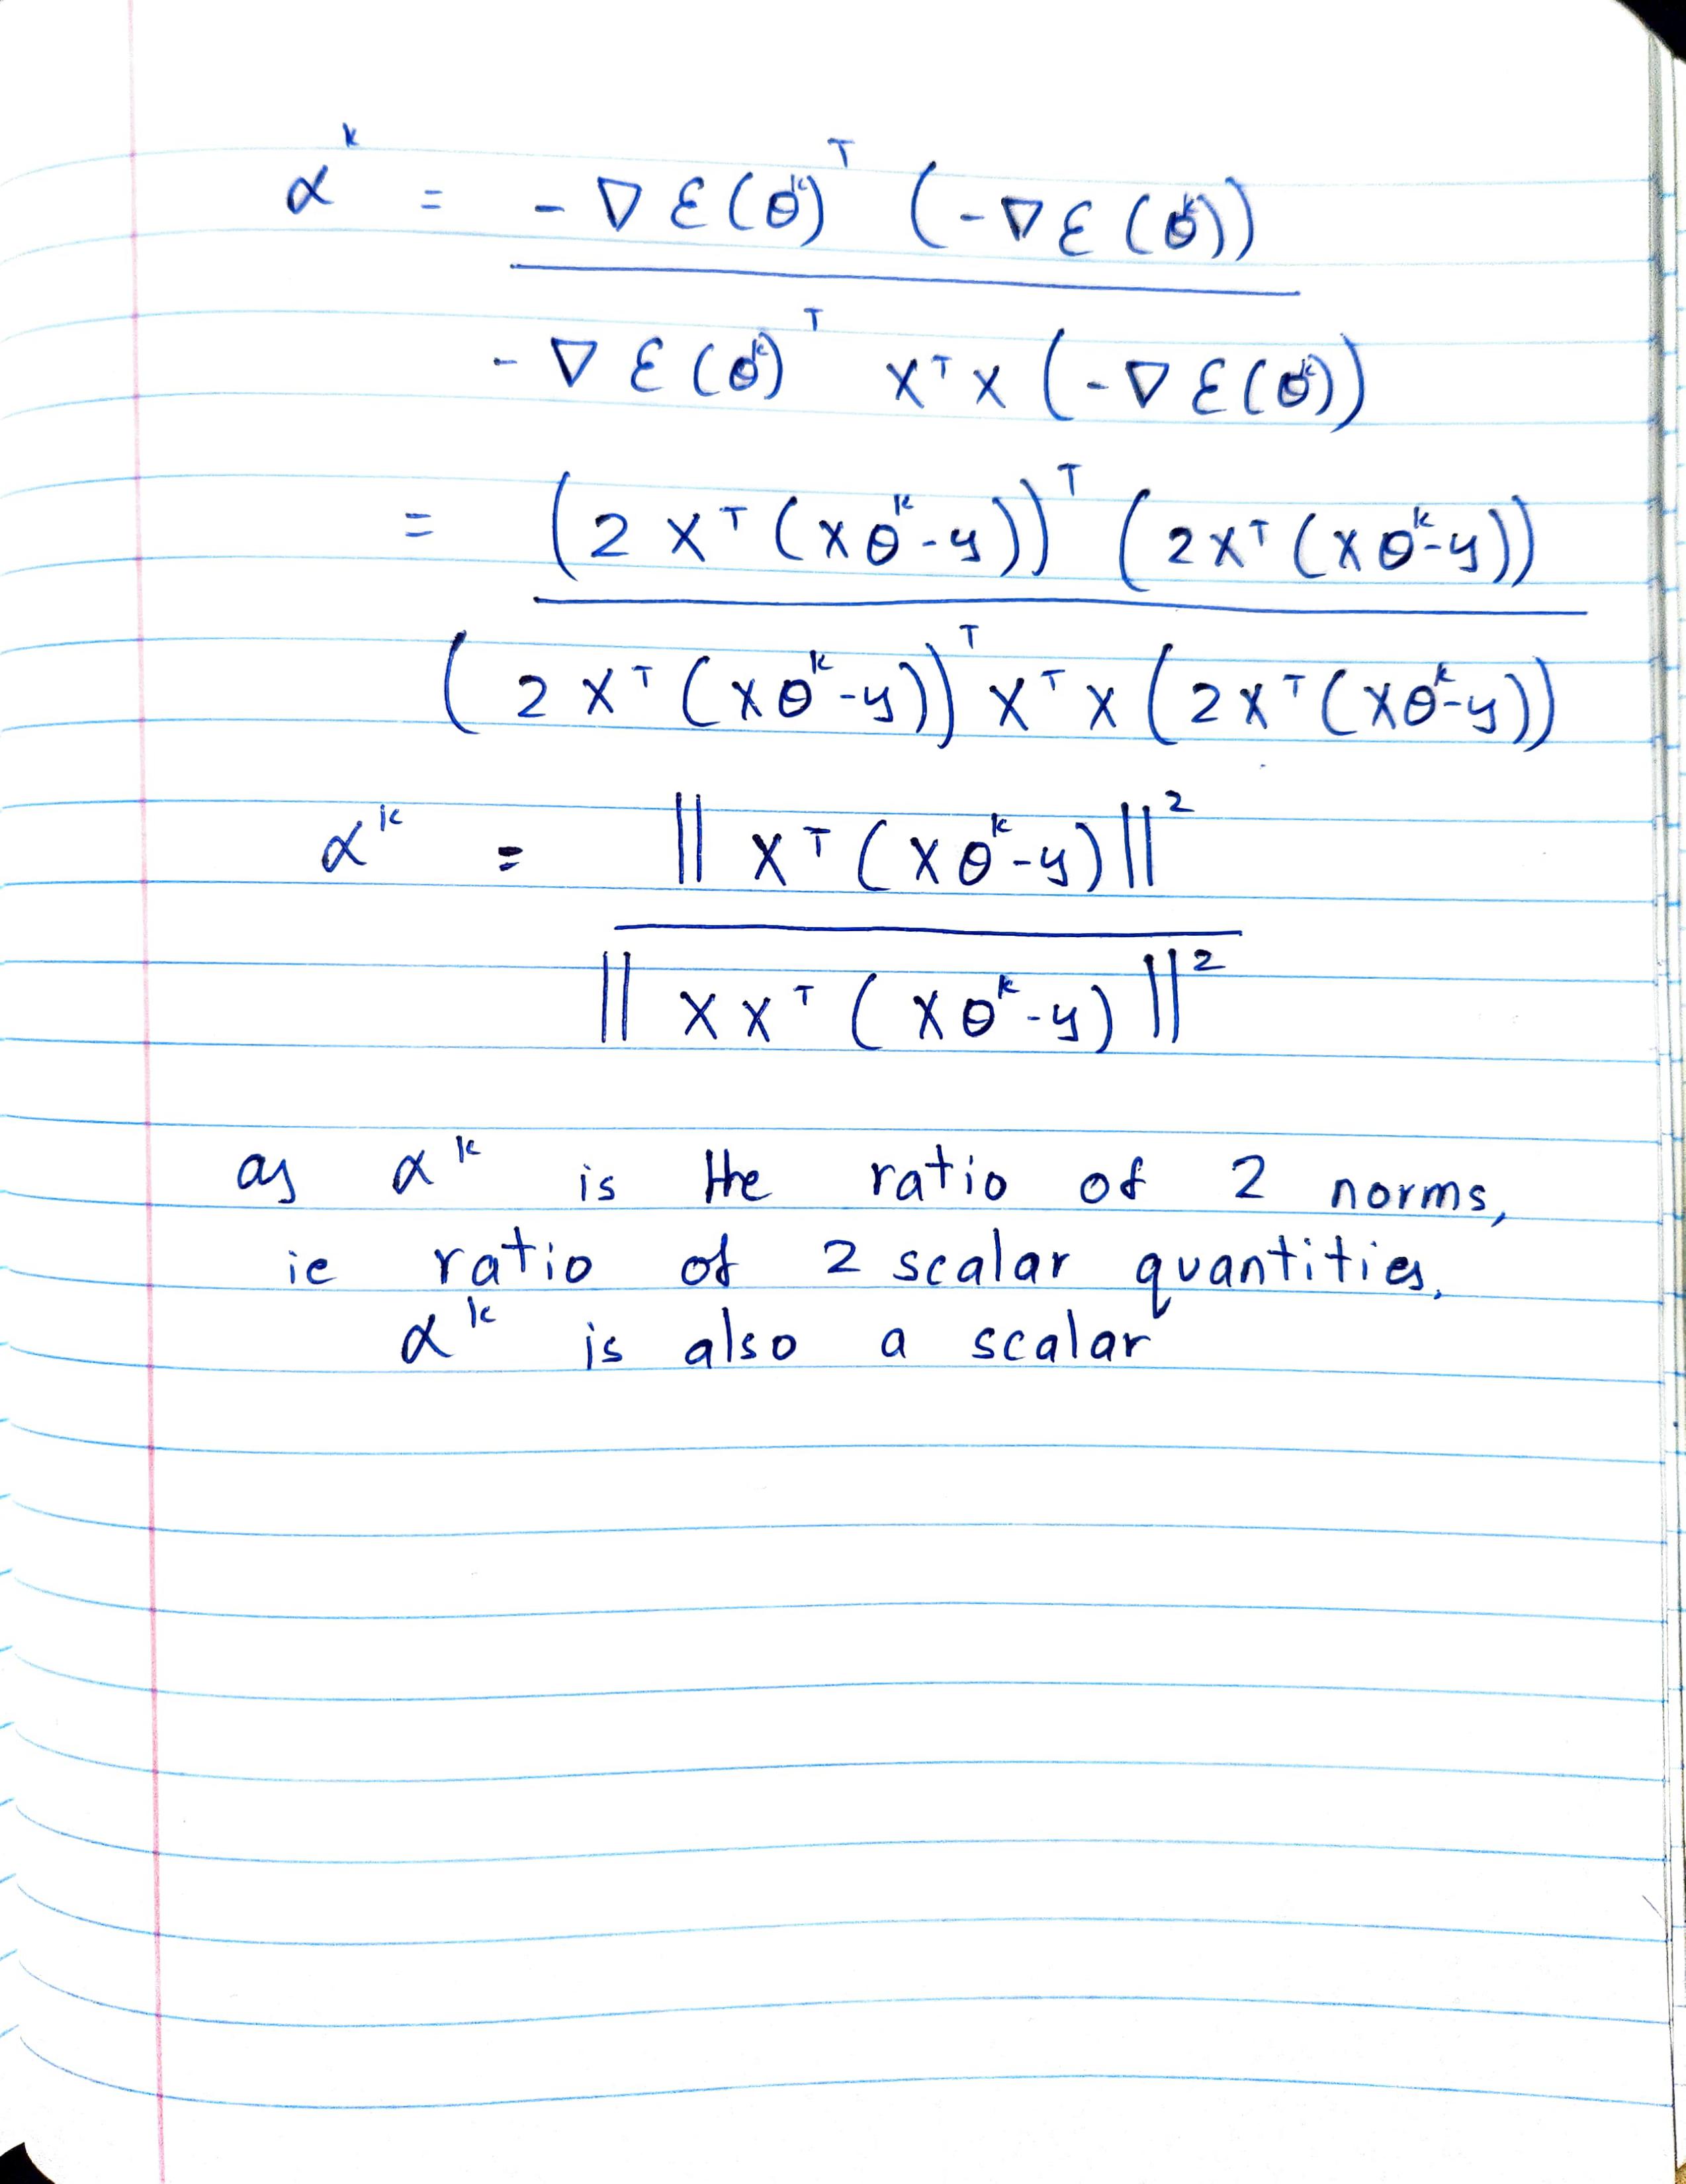 αᵏ = -∇ε(θᵏ)ᵀ (-∇ε(θᵏ))
-∇ε(θᵏ)ᵀ XᵀX (-∇ε(θᵏ))
= (2Xᵀ(Xθᵏ-y))ᵀ (2Xᵀ(Xθᵏ-y))
(2Xᵀ(Xθᵏ-y))ᵀ XᵀX (2Xᵀ(Xθᵏ-y))
αᵏ = ||Xᵀ(Xθᵏ-y)||²
||XXᵀ(Xθᵏ-y)||²
as αᵏ is the ratio of 2 norms,
ie ratio of 2 scalar quantities,
αᵏ is also a scalar